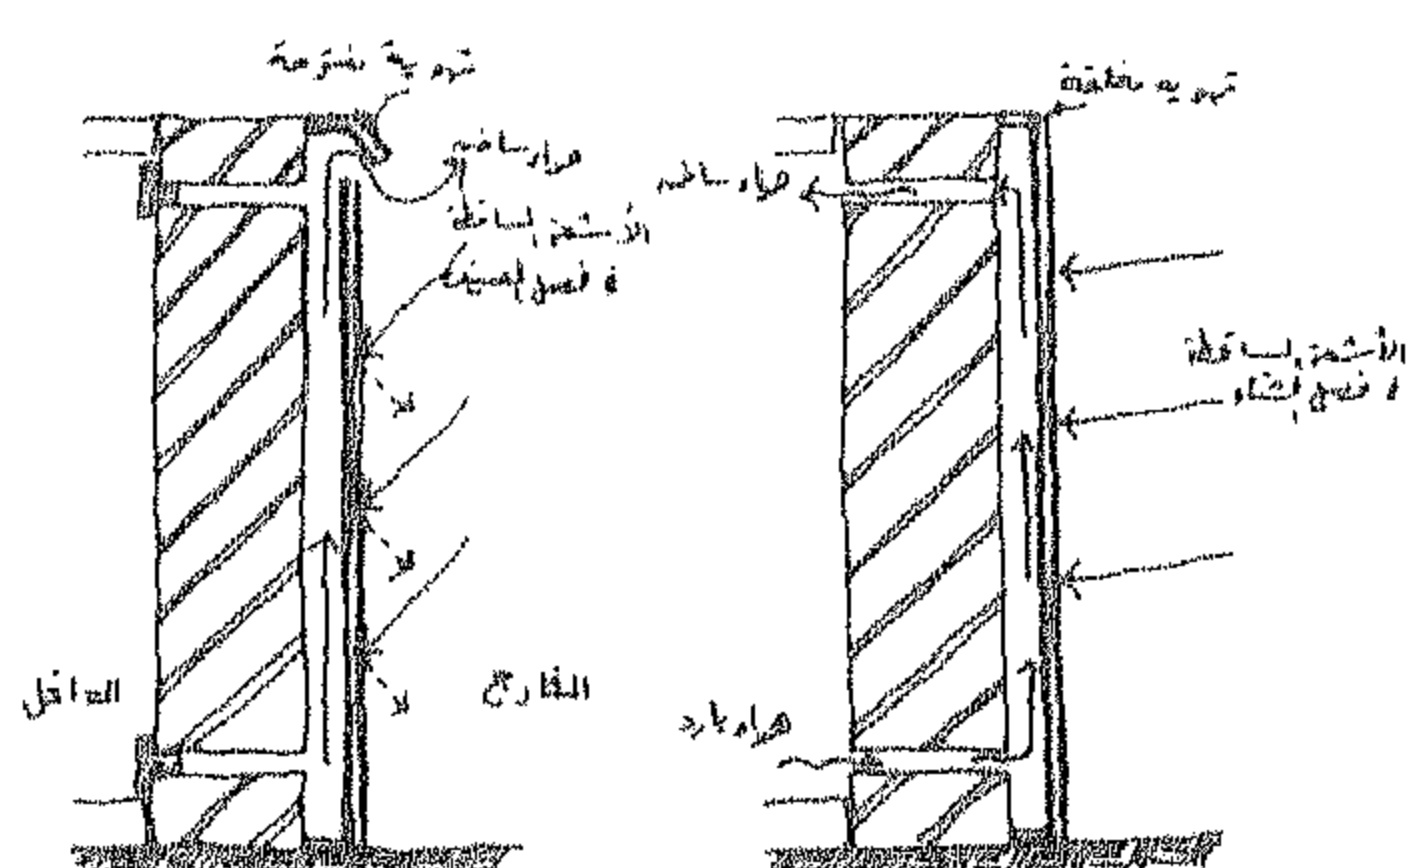 تهوية مفتوحة
هواء ساخن
الأشعة الساقطة
في فصل الصيف
الداخل
الخارج
تهوية مغلقة
هواء ساخن
الأشعة الساقطة
في فصل الشتاء
هواء بارد